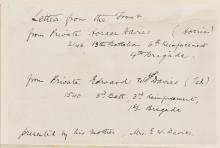 Letters from the Front
from Private Horace Davies (Horrie)
2140 13th Battalion 6th Reinforcement
4th Brigade.
from Private Edward W. Davies (Ted)
1540 3rd Batt, 3rd Reinforcement,
1st Brigade
presented by his mother Mrs E. W. Davies.